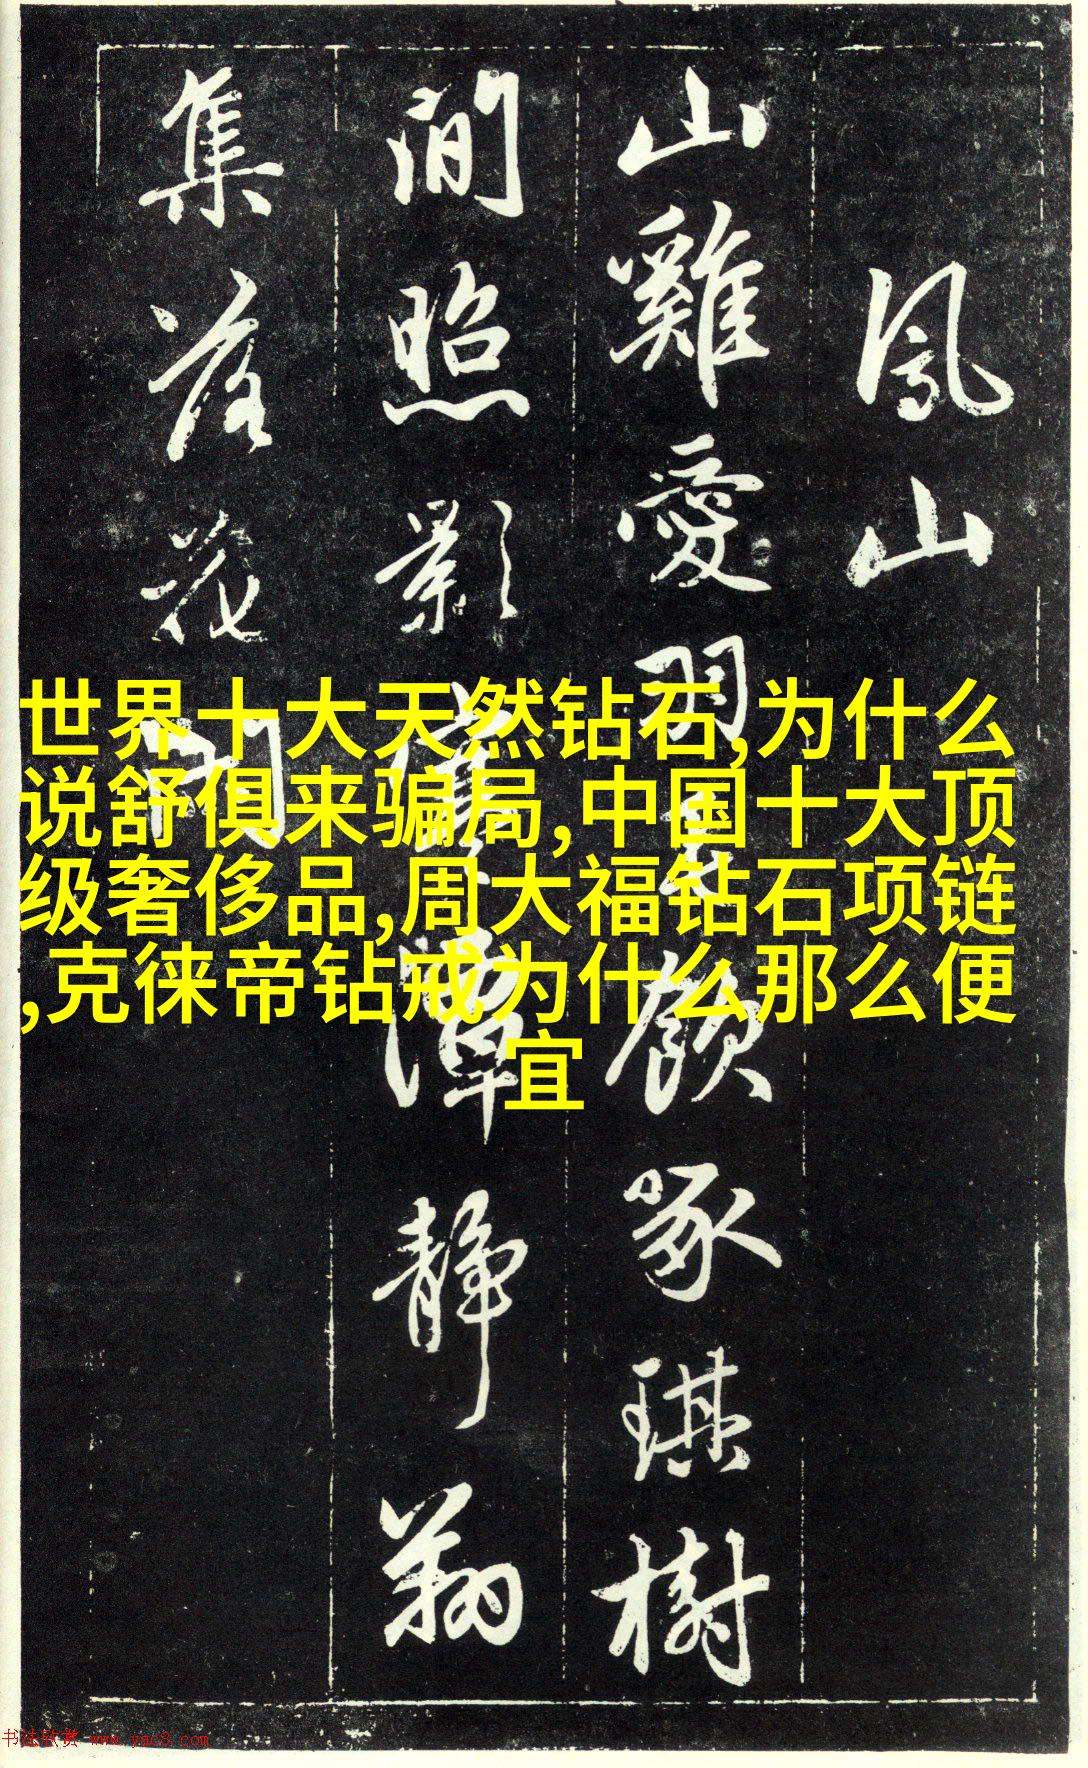 鳳山
山雞愛羽毛飲啄琪樹
間照影寒潭靜翔
集落花間
世界十大天然钻石,为什么
说舒俱来骗局,中国十大顶
级奢侈品,周大福钻石项链
,克徕帝钻戒为什么那么便
宜
书法欣赏 www.yac8.com